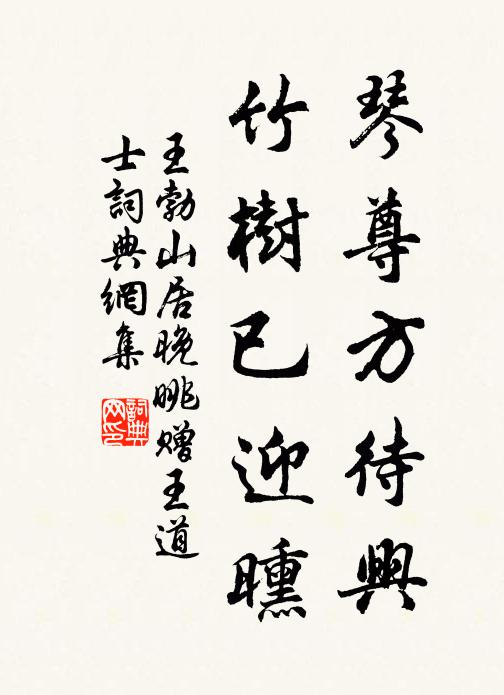 琴尊方待興
竹樹已迎曛
王勃山居晚眺贈王道
士詞典網集
詞典
网印